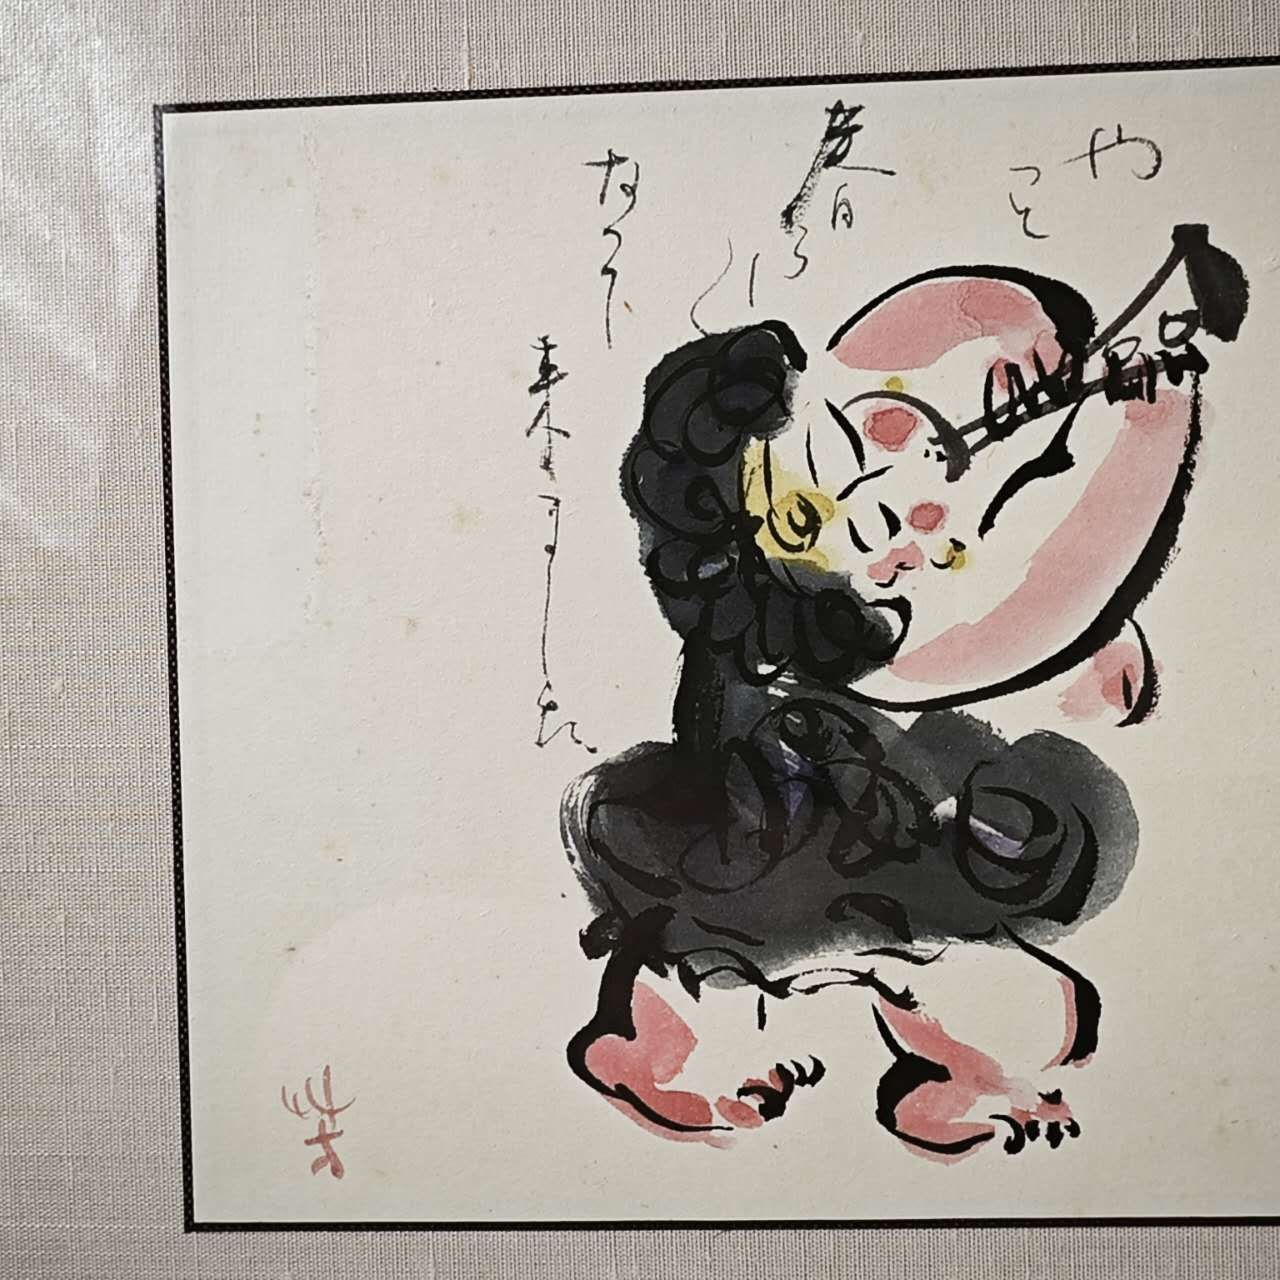 やっと
春らしく
なって
来ました